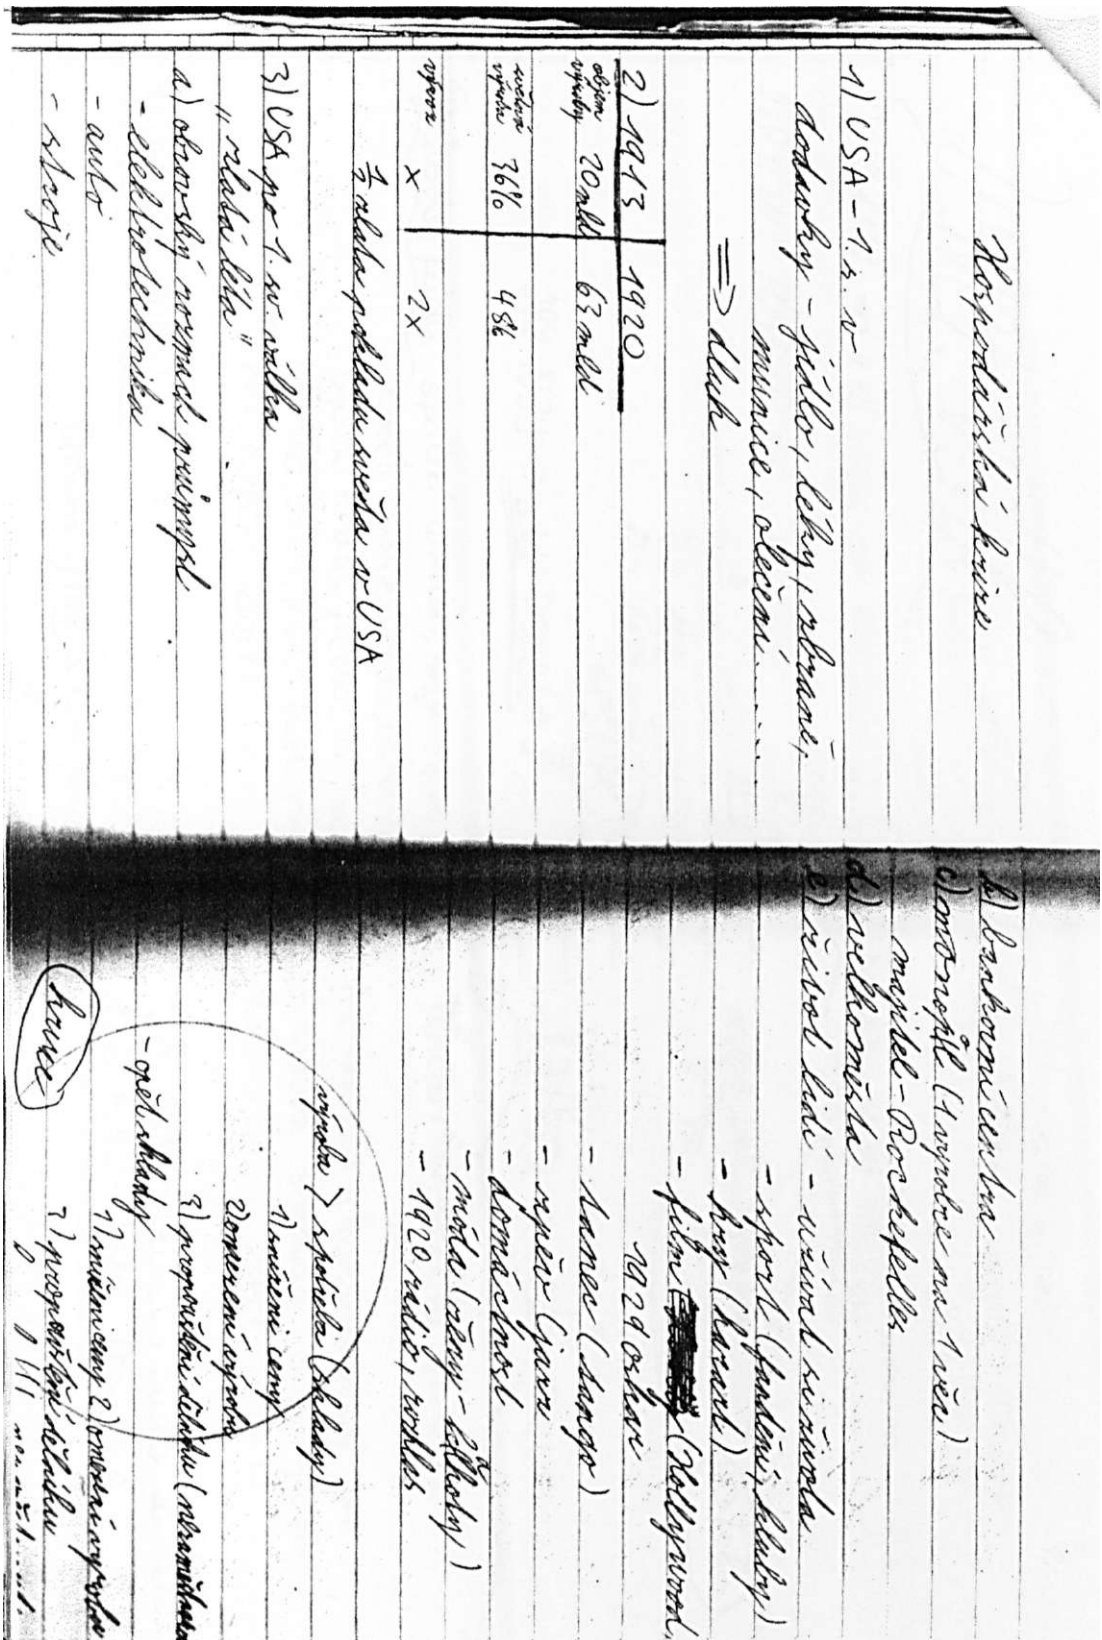 Hospodářská krize
1) USA - 1. s. v
dodávky - jídlo, léky, zbraně,
munice, olečení.....
=> dluh
2) 1913 1920
objem výroby 20 mld 63 mld
světová výroba 36% 48%
vývoz x 2x
1/2 zlata pokladu světa v USA
3) USA po 1. sv. válka
"zlatá léta"
a) obrovský rozmach průmysl
- elektrotechnika
- auto
- stroje
b) bankovní centra
c) monopol (1 výrobce na 1 věc)
majitel - Rockefeller
d) velkoměsta
e) život lidí - užívat si života
- sport (fandění, kluby)
- hry (hazard)
- film (Hollywood,
1929 oskar
- tanec (tango)
- zpěv (jazz
- domácnost
- móda (ženy - kalhoty)
- 1920 rádio, rozhlas
výroba > spotřeba (sklady)
1) snížení ceny
2) omezení výroby
3) propouštění dělníků
- opět sklady
1) snížení ceny 2) omezení výroby
3) propouštění dělníků
krize